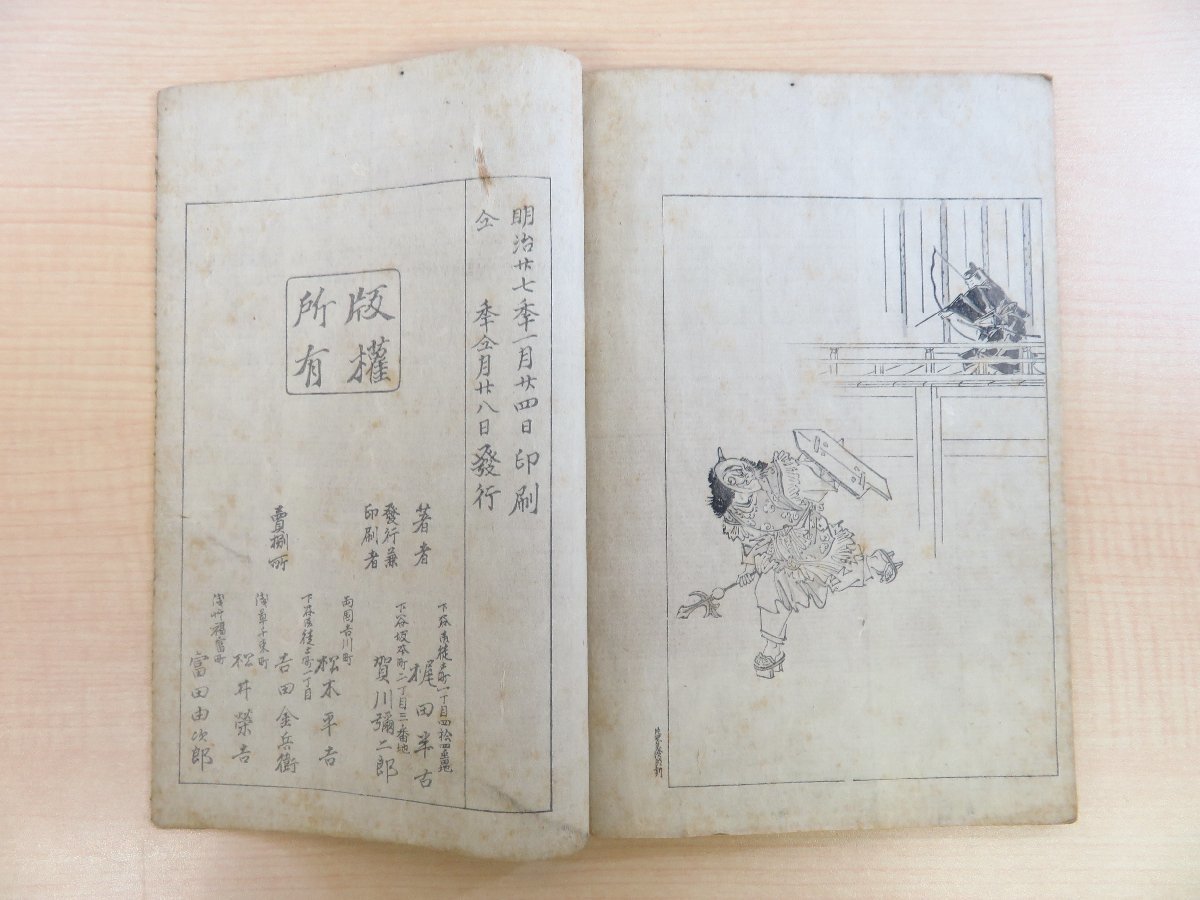 明治廿七季一月廿四日印刷
仝 季仝月廿八日發行
版權
所有
著者
下谷區徒士町一丁目四拾四番地
梶田半古
發行兼
印刷者
下谷坂本町二丁目三番地
賀川彌二郎
賣捌所
両国吉川町
松木平吉
下谷區徒士町一丁目
吉田金兵衛
浅草千束町
松井榮吉
浅草福富町
富田由次郎